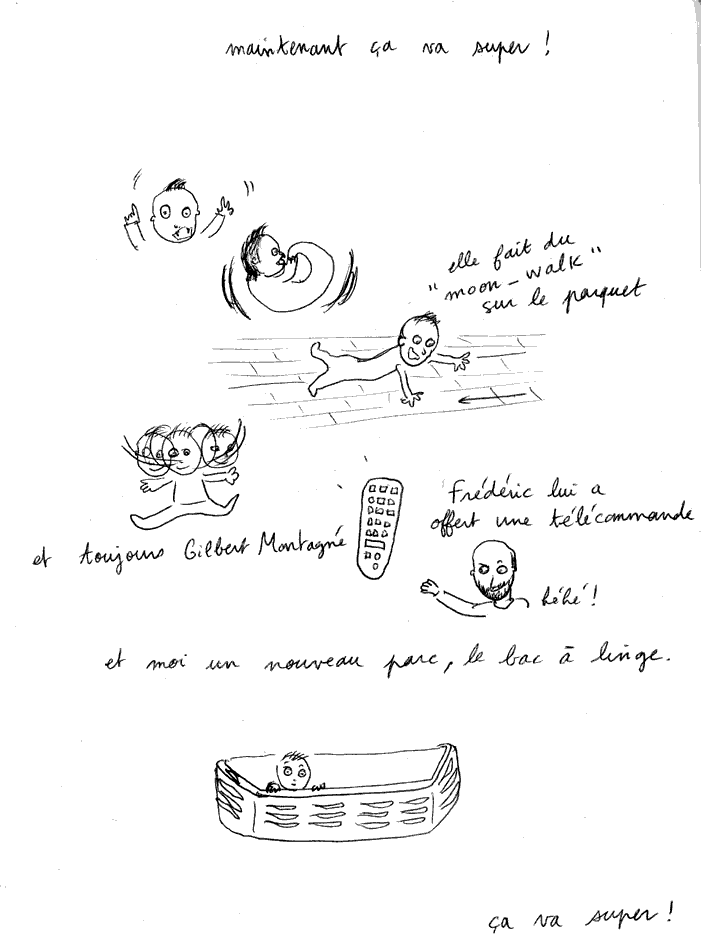 maintenant ça va super !
"elle fait du
moon-walk"
sur le parquet
Frédéric lui a
offert une télécommande
et toujours Gilbert Montagné
héhé !
et moi un nouveau parc, le bac à linge.
ça va super !